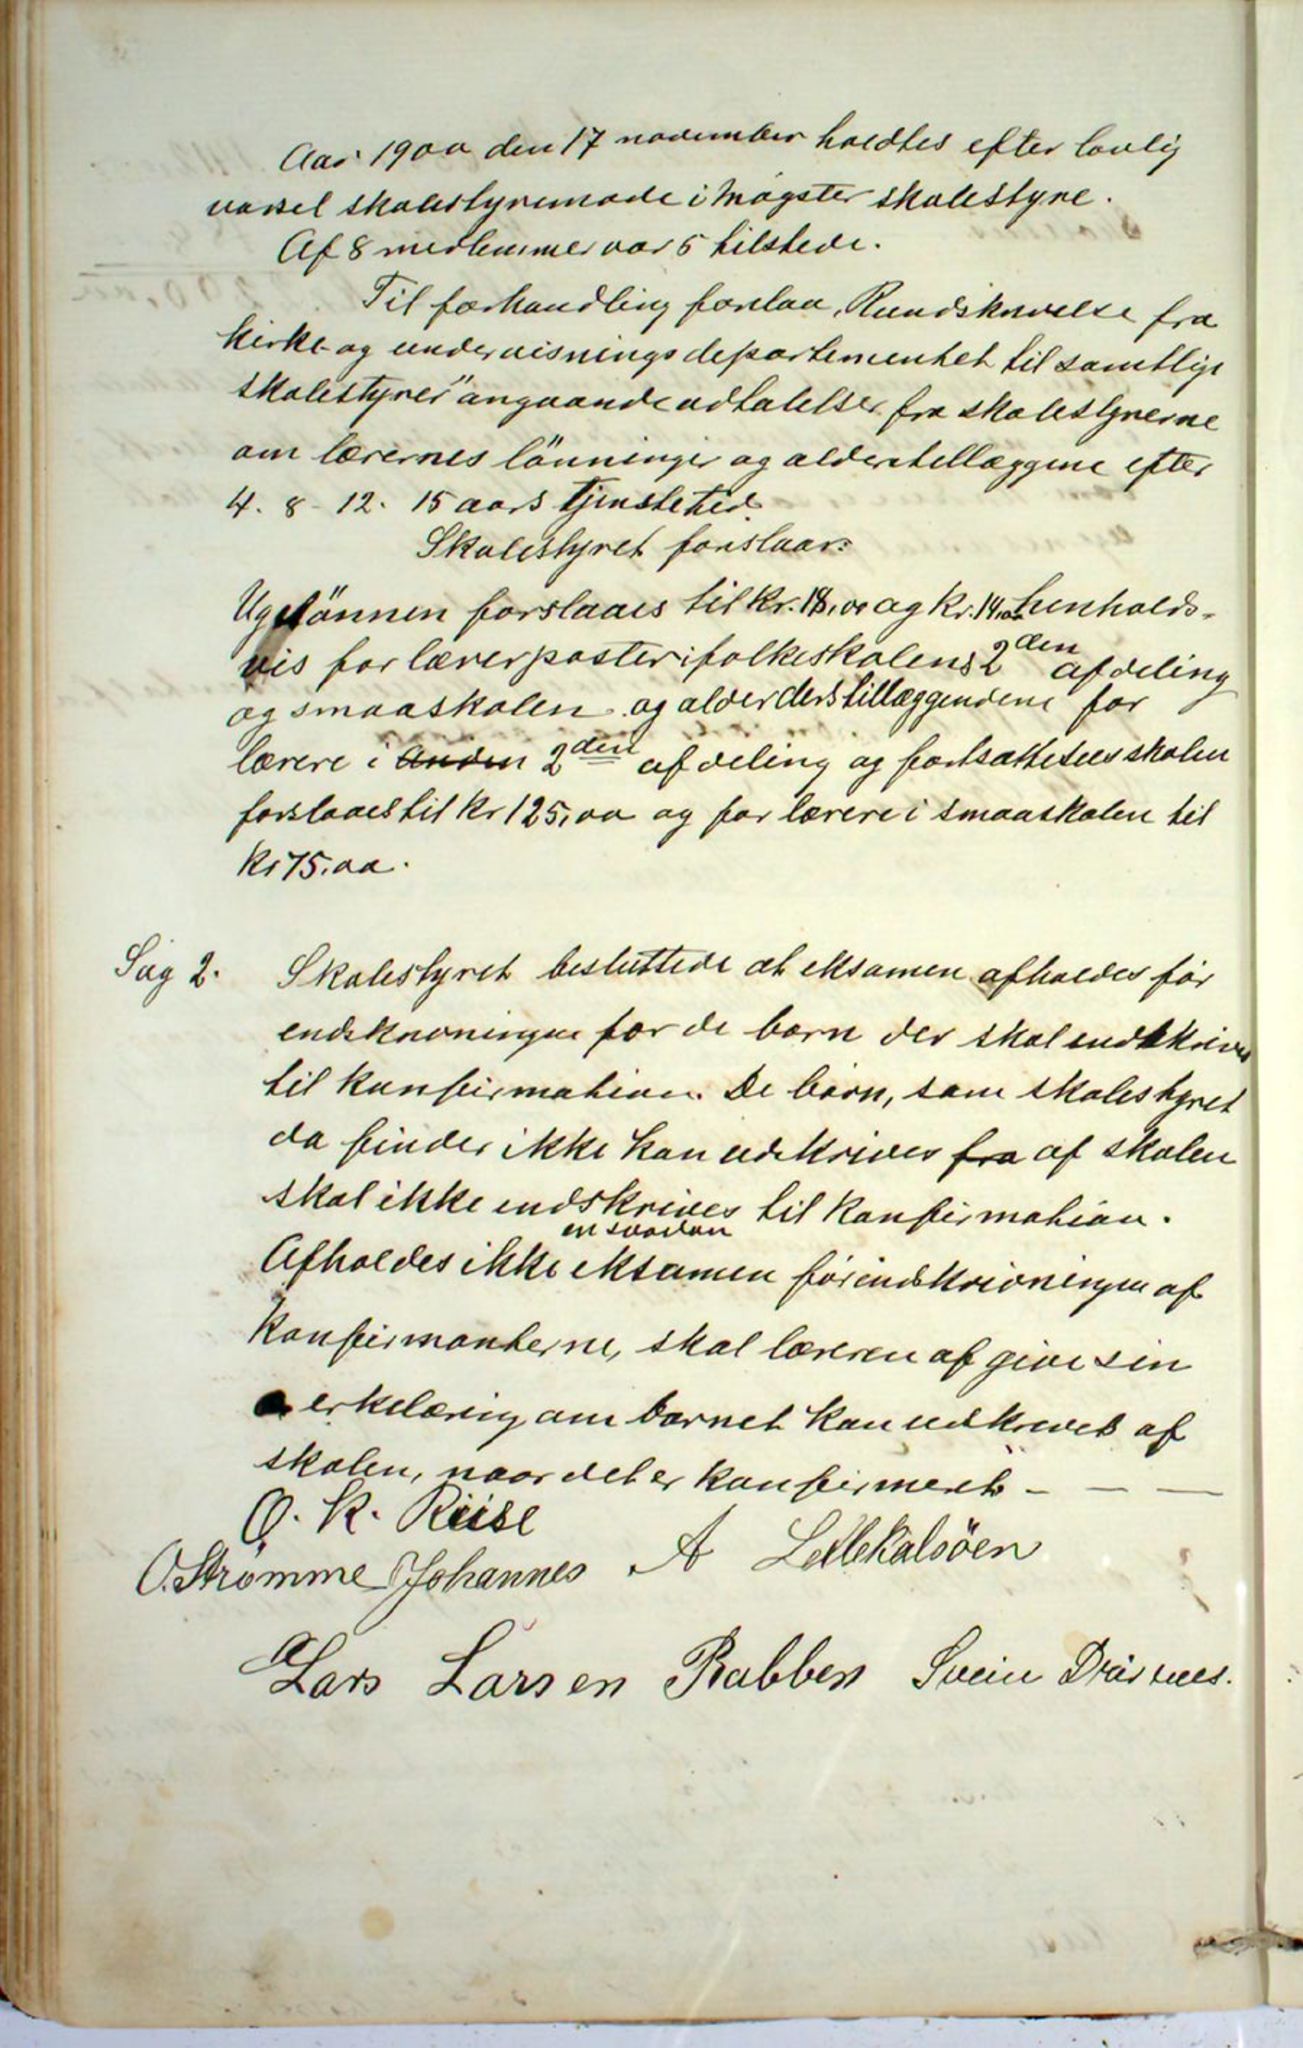 Aar 1900 den 17 november holdtes efter lovlig
varsel skolestyremøde i Møgster skolestyre.
Af 8 medlemmer var 5 tilstede.
Til forhandling forelaa, Rundskrivelse fra
kirke- og undervisningsdepartementet til samtlige
skolestyrer" angaande udtalelser fra skolestyrerne
om lærernes lönninger og alderstillæggene efter
4. 8 - 12. 15 aars tjenstetid.
Skolestyret forslaar:
Ugelönnen forslaaes til kr. 18,00 og kr. 14,00 henholds-
vis for lærerposter i folkeskolens 2den afdeling
og smaaskolen og alderderstillæggendene for
lærere i anden 2den afdeling og fortsættelsesskolen
forslaaes til kr 125,00 og for lærere i smaaskolen til
kr 75.00.
Sag 2. Skolestyret besluttede at eksamen afholdes før
indskrivningen for de børn der skal indskrives
til konfirmation. De børn, som skolestyret
da finder ikke kan udskrives fra af skolen
skal ikke indskrives til konfirmation.
en saadan
Afholdes ikke eksamen før indskrivningen af
konfirmanterne, skal læreren afgive sin
erkelæring om barnet kan udskrives af
skolen, naar det er konfirmert - — —
O. K. Riise
O. Strømme Johannes A Lillekalsöen
Lars Larsen Rabben Svein